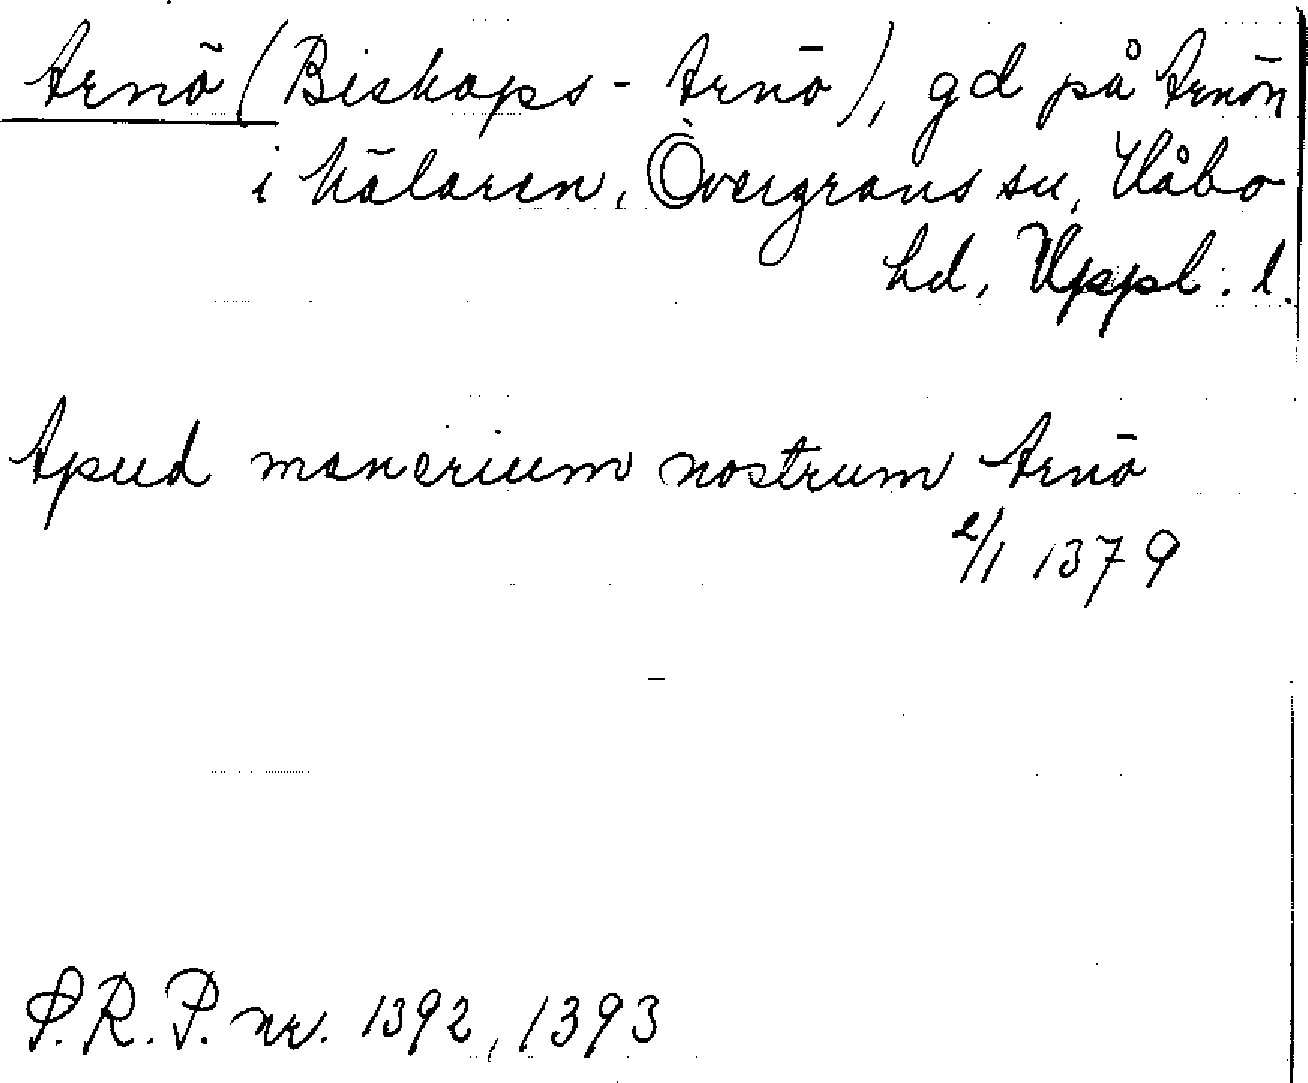 Arnö (Biskops-Arnö), gd på Arnön
i Mälaren, Övergrans sn, Håbo
hd, Uppl. l.
Apud manerium nostrum Arnö
2/1 1379
S.R.P. nr. 1392, 1393